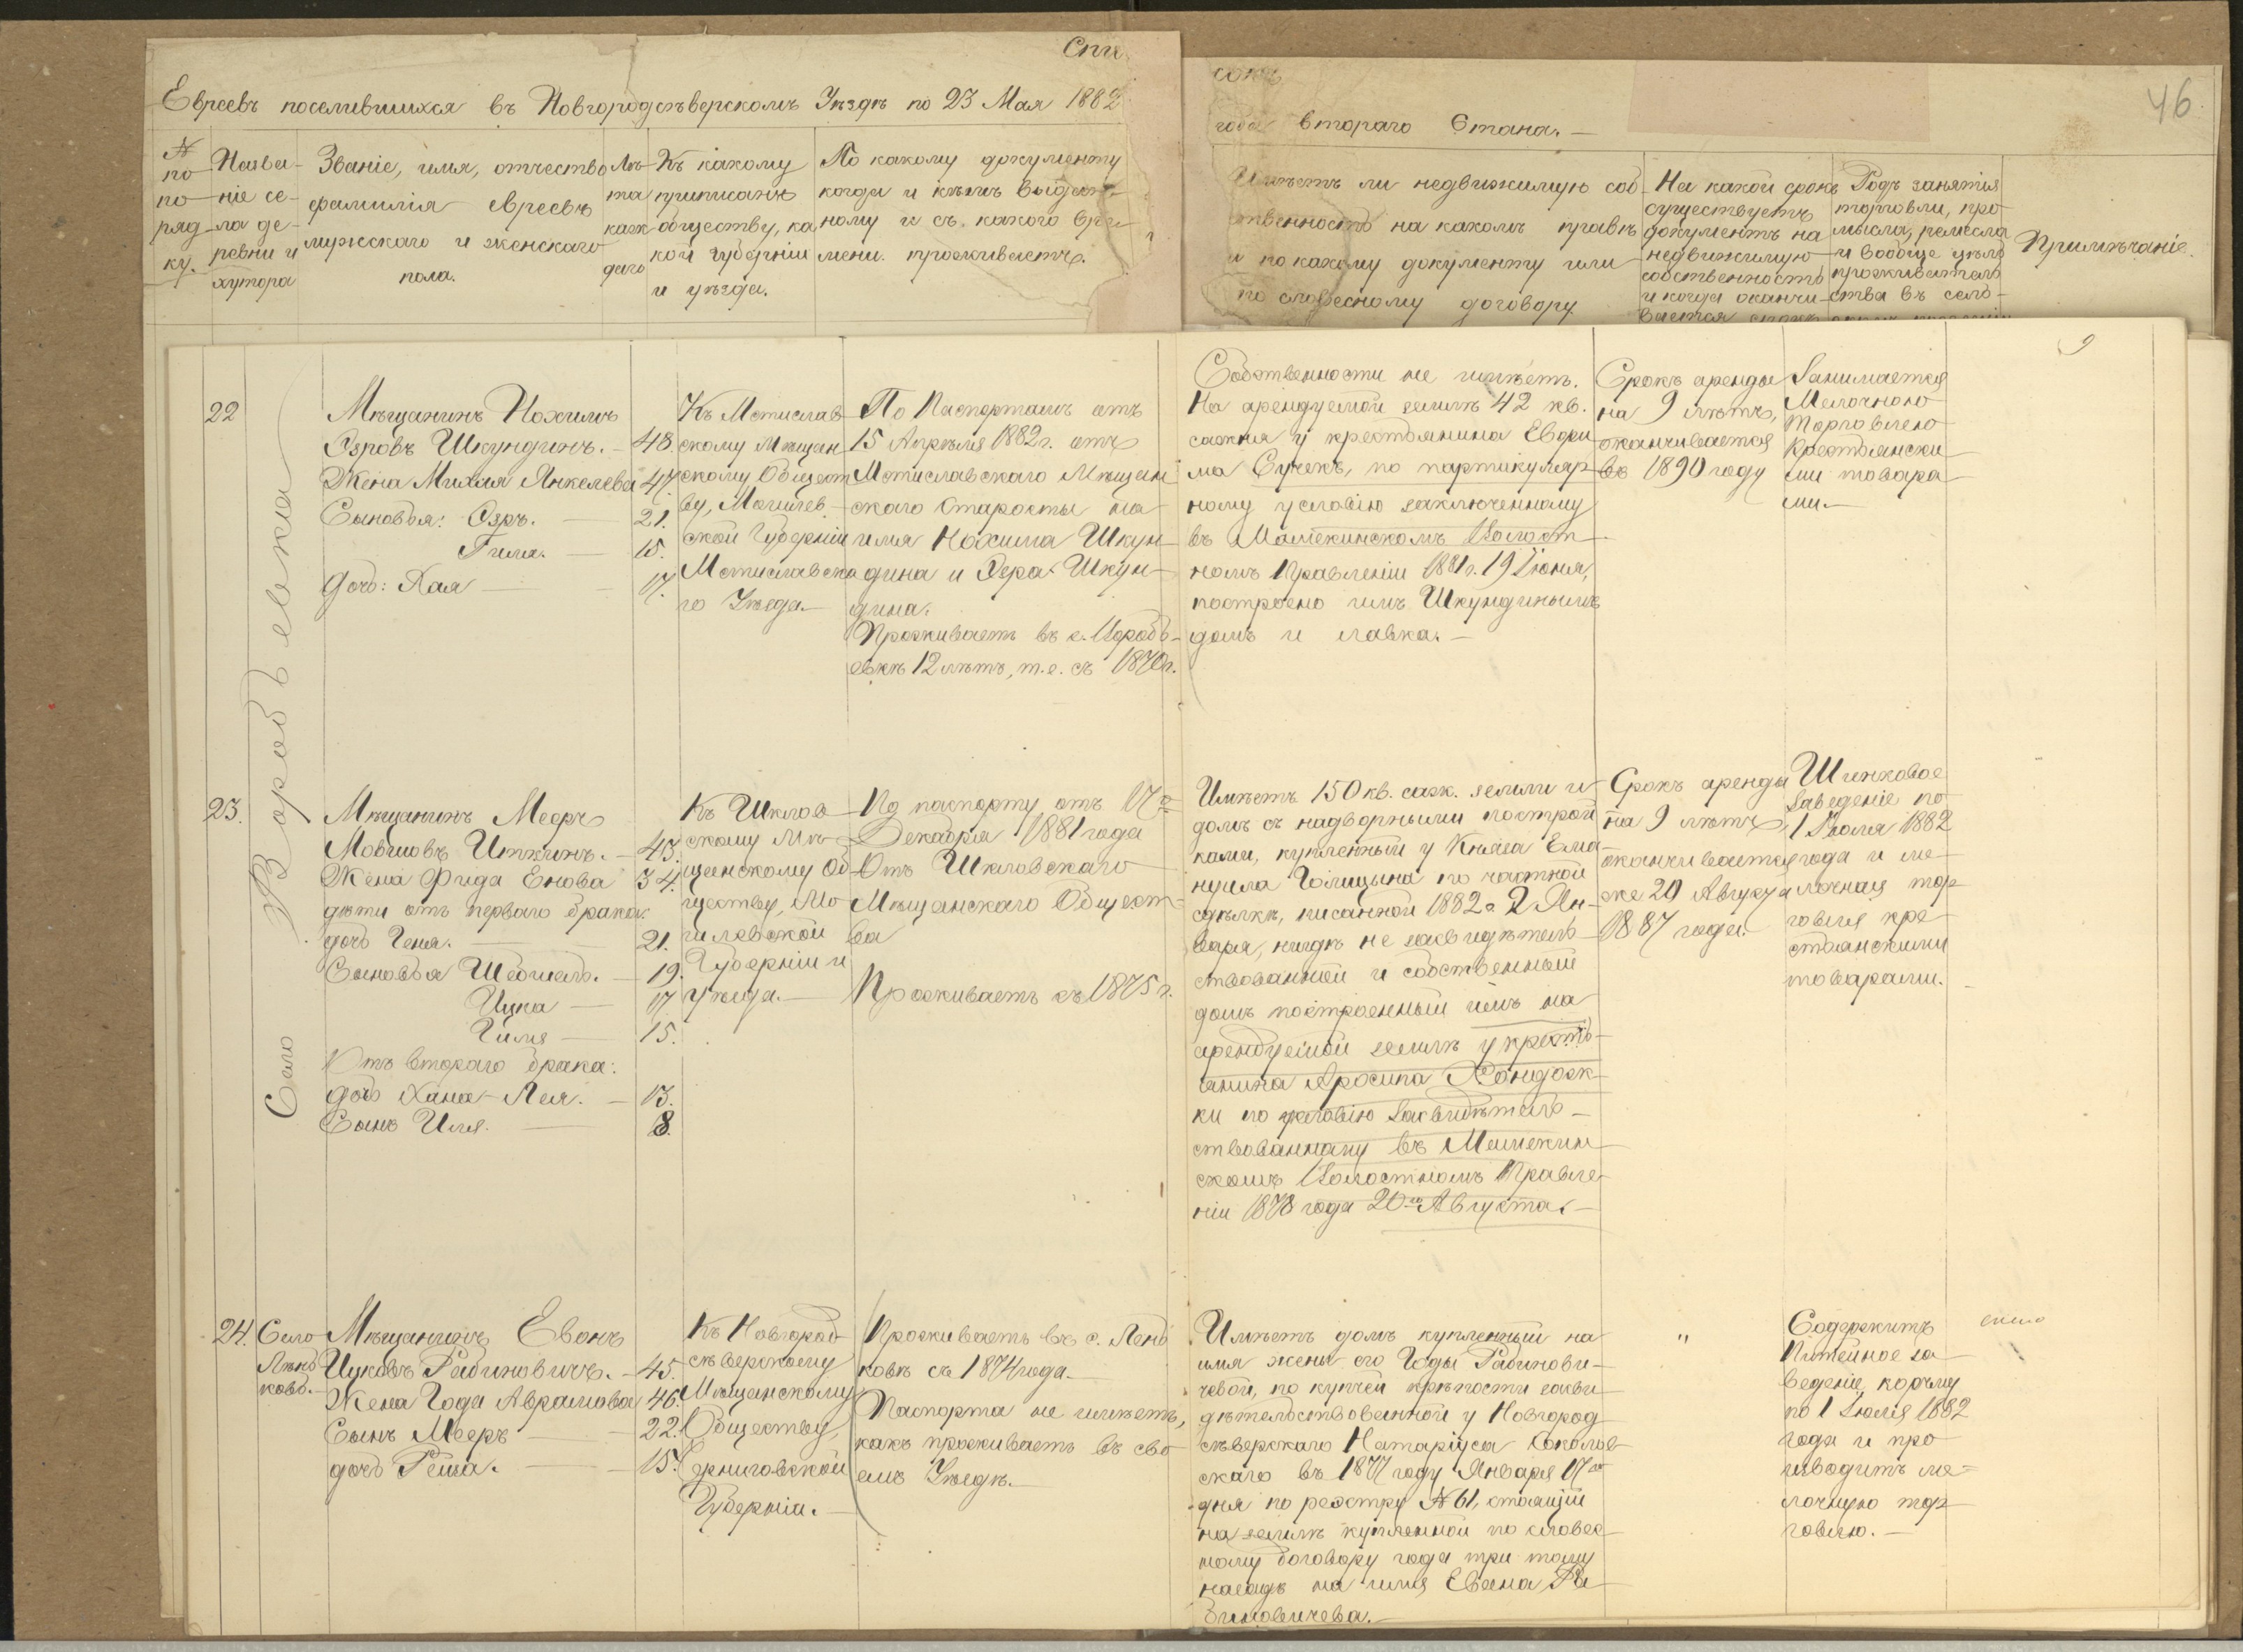 Спи
сокъ
46
Евреевъ поселившихся въ Новгородсѣверскомъ Уѣздѣ по 23 Мая 1882
года втораго Стана. —
№
по
по-
ряд-
ку.
Назва-
ніе се-
ла де-
ревни и
хутора
Званіе, имя, отчество
фамилія евреевъ
мужскаго и женскаго
пола.
Лѣ-
та
каж-
даго
Къ какому
приписанъ
обществу, ка
кой губерніи
и уѣзда.
По какому документу
когда и кѣмъ выдан-
ному и съ какого вре-
мени проживаетъ.
Имѣетъ ли недвижимую соб-
ственность на какомъ правѣ
и по какому документу или
по словесному договору
На какой срокъ
существуетъ
документъ на
недвижимую
собственность
и когда оканчи-
вается срокъ
Родъ занятія
торговли, про
мысла, ремесла
и вообще цѣль
прожыватель
ства въ сель-
Примѣчаніе.
9
22
Село Воробьевка
Мѣщанинъ Нохимъ
Озровъ Шкундинъ. — 48.
Жена Михля Янкелева 47.
Сыновья: Озръ. — 21.
Гима. — 15.
Дочь: Хая — 17.
Къ Мстислав
скому Мѣщан
скому Общест
ву, Могилев
ской Губерніи
Мстиславска
го Уѣзда. —
По Паспортамъ отъ
15 Апрѣля 1882 г. отъ
Мстиславскаго Мѣщан
скаго Старосты на
имя Нохима Шкун
дина и Озра Шкун-
дина.
Проживаетъ въ с. Воробь-
евкѣ 12 лѣтъ, т. е. съ 1870 г.
Собственности не имѣетъ.
На арендуемой землѣ 42 кв.
сажня у крестьянина Евфи
ма Сучекъ, по партикуляр
ному условію заключенному
въ Мамекинскомъ Волост
номъ Правленіи 1881 г. 19 Іюня,
построено имъ Шкундинымъ
домъ и лавка. —
Срокъ аренды
на 9 лѣтъ,
оканчивается
въ 1890 году
Занимается
Мелочною
Торговлею
Крестьянски
ми товара
ми. —
23.
Мѣщанинъ Мееръ
Мовшовъ Иткинъ. — 43.
Жена Фрида Енова 34.
дѣти отъ перваго брака:
дочь Геня. — 21.
Сыновья Шевшель. — 19.
Ицка — 17
Гиля — 15.
Отъ втораго брака:
дочь Хана-Лея. — 13.
Сынъ Иля. — 8.
Къ Шклов
скому Мѣ-
щанскому Об
ществу, Мо
гилевской
Губерніи и
уѣзда. —
По паспорту отъ 17 го
Декабря 1881 года
Отъ Шкловскаго
Мѣщанскаго Общест-
ва
Проживаетъ съ 1875 г.
Имѣетъ 150 кв. саж. земли и
домъ съ надворными построй
ками, купленный у Князя Ема
нуила Голицына по частной
сдѣлкѣ, писанной 1882 г. 2 Ян-
варя, нигдѣ не засвидѣтель
ствованной и собственный
домъ построенный имъ на
арендуемой землѣ у кресть-
янина Хондож-
ки по условію Засвидѣтель-
ствованному въ Мамекин
скомъ Волостномъ Правле-
ніи 1878 года 20 го Августа. —
Срокъ аренды
на 9 лѣтъ,
оканчивается
же 20 Августа
1887 года.
Шинковое
Заведеніе по
1 Іюля 1882
года и ме-
лочная тор
говля кре
стьянскими
товарами.
24.
Село
Лѣнь
ково. —
Мѣщанинъ Евонъ
Ицковъ Рабиновичъ. — 45.
Жена Года Абрамова 46.
Сынъ Мееръ — 22.
дочь Реша. — 15.
Къ Новгород
сѣверскому
Мѣщанскому
Обществу,
Черниговской
Губерніи. —
Проживаетъ въ с. Лень
ковѣ съ 1874 года. —
Паспорта не имѣетъ,
какъ проживаетъ въ сво
емъ Уѣздѣ. —
Имѣетъ домъ купленный на
имя жены его Годы Рабинови-
чевой, по купчей крѣпости засви
дѣтельствованной у Новгород
сѣверскаго Натаріуса Соколов
скаго въ 1877 году Января 17 го
дня по реэстру № 61, стоящій
на землѣ купленной по словес
ному договору года три тому
назадъ на имя Евана Ра
биновичева. —
"
Содержитъ
Питейное за
веденіе корчму
по 1 Іюля 1882
года и про
изводитъ ме-
лочную тор
говлю. —